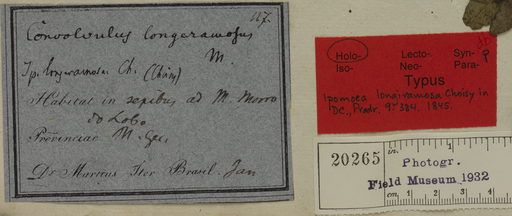 117.
Convolvulus longeramosus
M.
Ip. longeramosa Ch. (Choisy)
Habitat in sepibus ad M. Morro
do Lobo
Provinciae M. Ger.
Dr. Martius Iter Brasil. Jan
Holo- Lecto- Syn-
Iso- Neo- Para-
Typus
Ipomoea longiramosa Choisy in
DC., Prodr. 9: 384. 1845.
20265
in. 1
Photogr.
Field Museum 1932
cm. 1 2 3 4